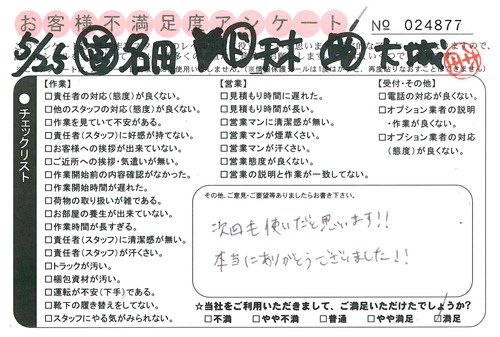 お客様不満足度アンケート
No 024877
5/25 石田 大城
チェックリスト
【作業】
□責任者の対応(態度)が良くない。
□他のスタッフの対応(態度)が良くない。
□作業を見ていて不安がある。
□責任者(スタッフ)に好感が持てない。
□お客様への挨拶が出来ていない。
□ご近所への挨拶・気遣いが無い。
□作業開始前の内容確認がなかった。
□作業開始時間が遅れた。
□荷物の取り扱いが雑である。
□お部屋の養生が出来ていない。
□作業時間が長すぎる。
□責任者(スタッフ)に清潔感が無い。
□責任者(スタッフ)が汗くさい。
□トラックが汚い。
□梱包資材が汚い。
□運転が不安(下手)である。
□靴下の履き替えをしてない。
□スタッフにやる気がみられない。
【営業】
□見積もり時間に遅れた。
□見積もり時間が長い。
□営業マンに清潔感が無い。
□営業マンが煙草くさい。
□営業マンが汗くさい。
□営業態度が良くない。
□営業の説明と作業が一致してない。
【受付・その他】
□電話の対応が良くない。
□オプション業者の説明
・作業が良くない。
□オプション業者の対応
(態度)が良くない。
その他、ご意見・ご要望等ありましたらお書き下さい。
次回も使いだと思います!!
本当にありがとうございました!!
☆当社をご利用いただきまして、ご満足いただけたでしょうか?
□不満 □やや不満 □普通 □やや満足 □満足